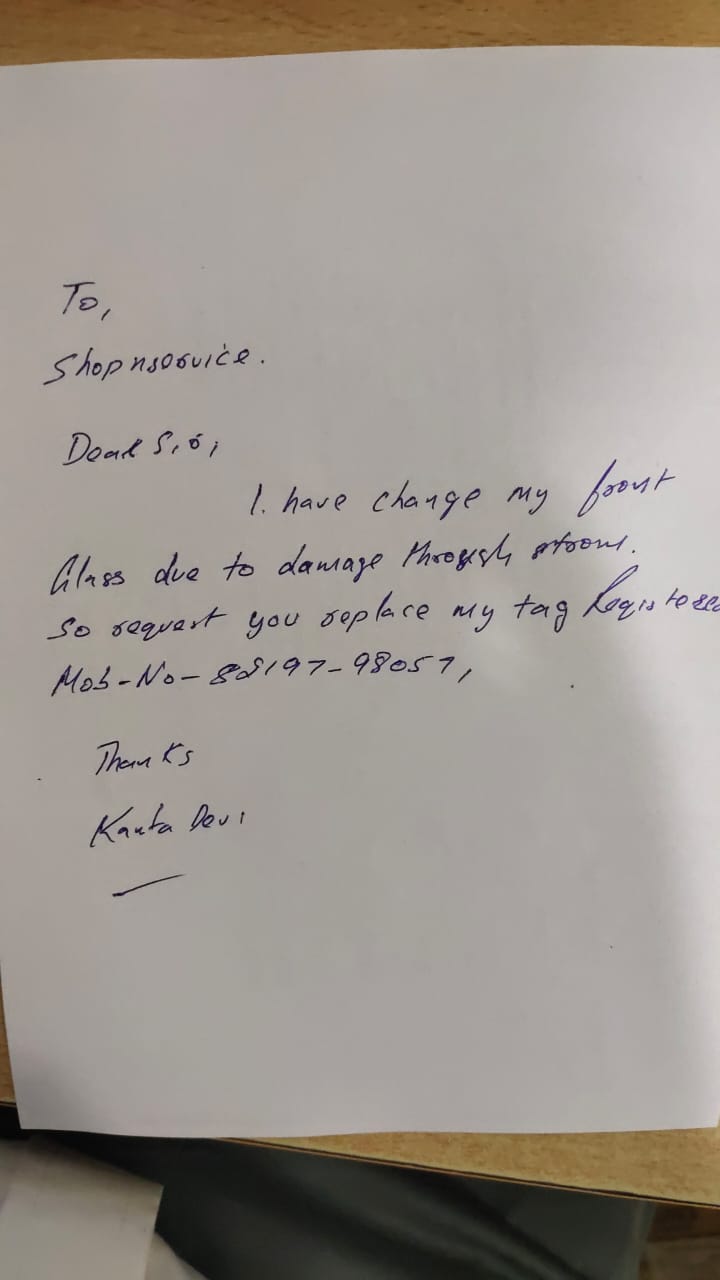 To,
Shopnservice.
Dear Sir,
I. have change my front
Glass due to damage through storm.
So request you replace my tag Registered
Mob-No- 88197-98057,
Thanks
Kanta Devi